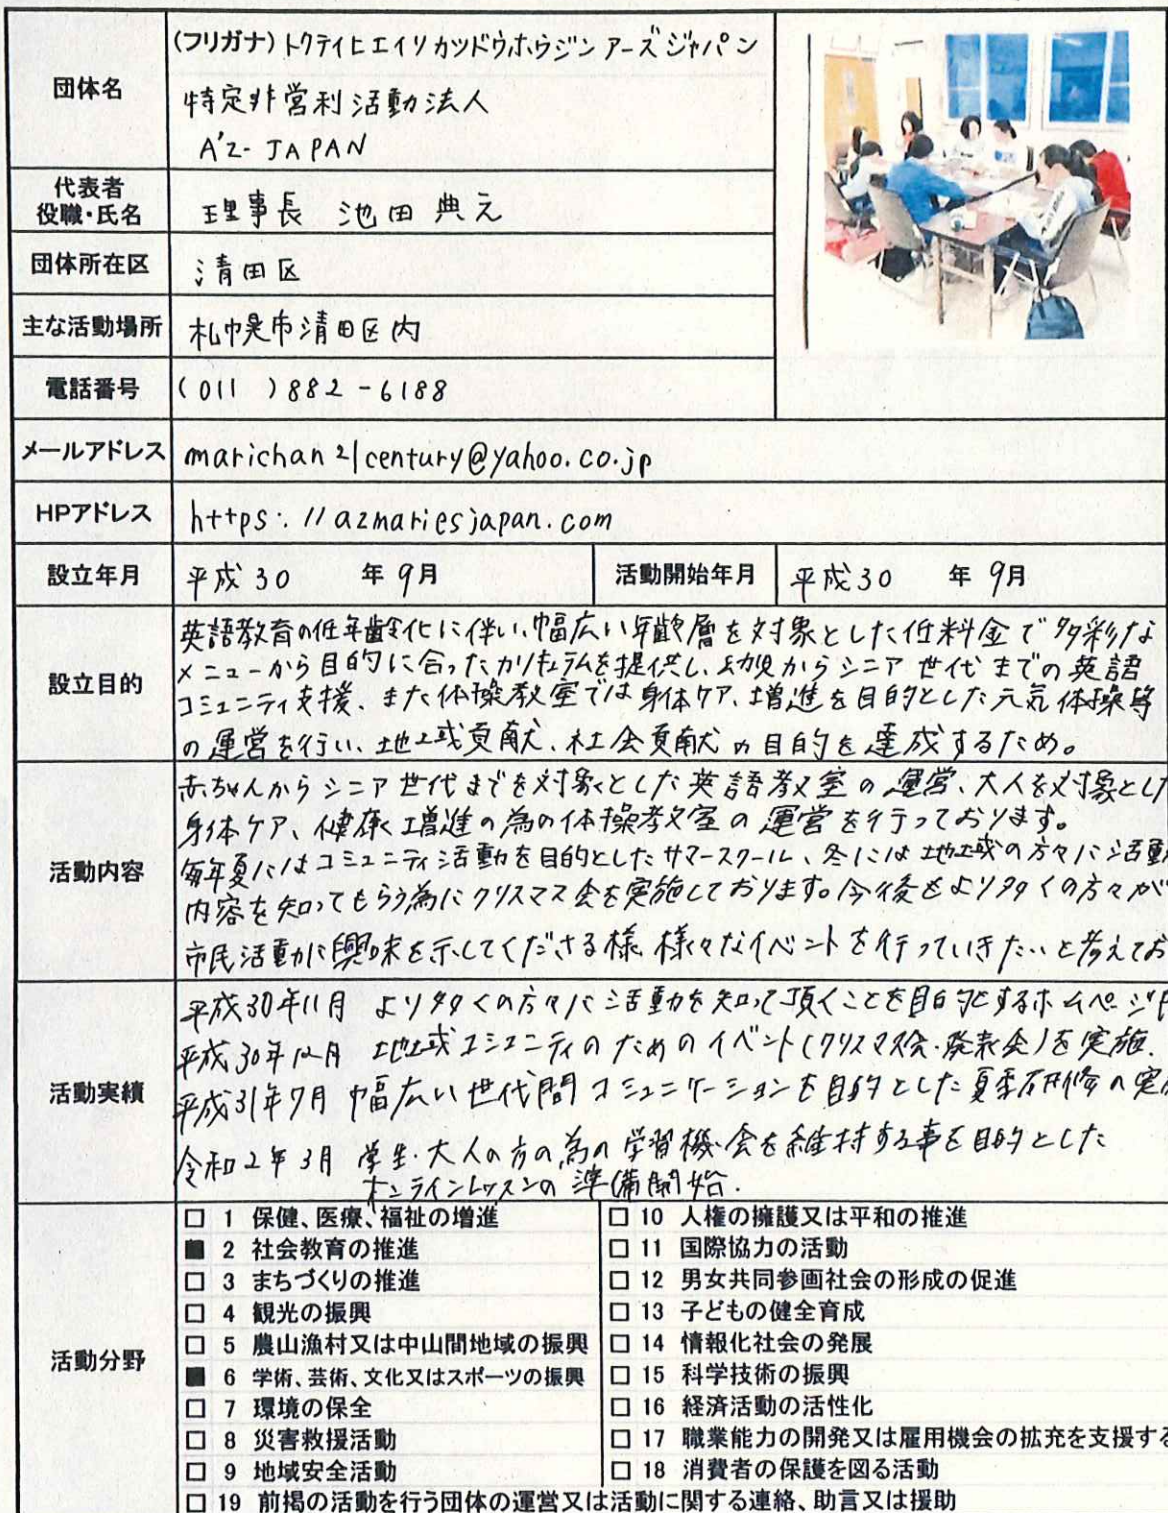 団体名
(フリガナ)トクテイヒエイリカツドウホウジンアーズジャパン
特定非営利活動法人
A'z-JAPAN
代表者
役職・氏名
理事長 池田典元
団体所在区
清田区
主な活動場所
札幌市清田区内
電話番号
(011)882-6188
メールアドレス
marichan21century@yahoo.co.jp
HPアドレス
https://azmariesjapan.com
設立年月
平成30 年9月
活動開始年月
平成30 年9月
設立目的
英語教育の低年齢化に伴い、幅広い年齢層を対象とした低料金で多彩な
メニューから目的に合ったカリキュラムを提供し、幼児からシニア世代までの英語
コミュニティ支援、また体操教室では身体ケア、増進を目的とした元気体操等
の運営を行い、地域貢献、社会貢献の目的を達成するため。
活動内容
赤ちゃんからシニア世代までを対象とした英語教室の運営、大人を対象とした
身体ケア、健康増進の為の体操教室の運営を行っております。
毎年夏にはコミュニティ活動を目的としたサマースクール、冬には地域の方々に活動
内容を知ってもらう為にクリスマス会を実施しております。今後もより多くの方々が
市民活動に興味を示してくださる様、様々なイベントを行っていきたいと考えてお
活動実績
平成30年11月 より多くの方々に活動を知って頂くことを目的とするホームページ
平成30年12月 地域コミュニティのためのイベント(クリスマス会・発表会)を実施.
平成31年7月 幅広い世代間コミュニケーションを目的とした夏季研修の実
令和2年3月 学生・大人の方の為の学習機会を維持する事を目的とした
オンラインレッスンの準備開始.
活動分野
□ 1 保健、医療、福祉の増進
■ 2 社会教育の推進
□ 3 まちづくりの推進
□ 4 観光の振興
□ 5 農山漁村又は中山間地域の振興
■ 6 学術、芸術、文化又はスポーツの振興
□ 7 環境の保全
□ 8 災害救援活動
□ 9 地域安全活動
□ 10 人権の擁護又は平和の推進
□ 11 国際協力の活動
□ 12 男女共同参画社会の形成の促進
□ 13 子どもの健全育成
□ 14 情報化社会の発展
□ 15 科学技術の振興
□ 16 経済活動の活性化
□ 17 職業能力の開発又は雇用機会の拡充を支援する
□ 18 消費者の保護を図る活動
□ 19 前掲の活動を行う団体の運営又は活動に関する連絡、助言又は援助